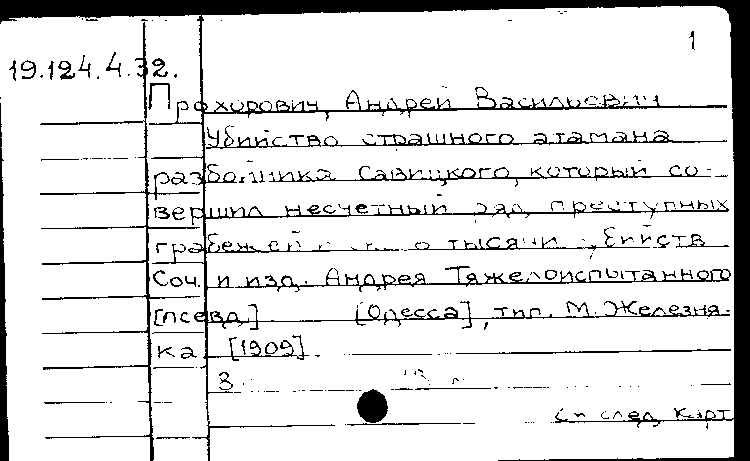 1
19.124.4.32.
Прохорович, Андрей Васильевич
Убийство страшного атамана
разбойника Савицкого, который со-
вершил несчетный ряд преступных
грабежей тысячи убийств
Соч. и изд. Андрея Тяжелоиспытанного
[псевд.] [Одесса], тип. М. Железня-
ка [1909].
8
См след. карт